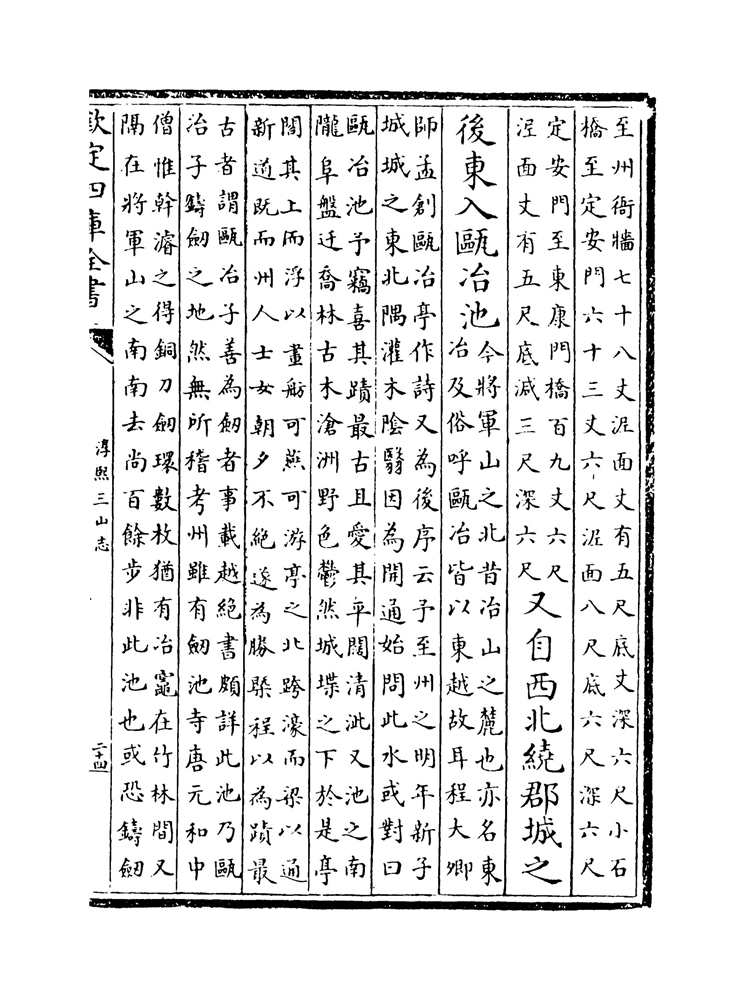 至州衙牆七十八丈浞面丈有五尺底丈深六尺小石
橋至定安門六十三丈六尺浞面八尺底六尺深六尺
定安門至東康門橋百九丈六尺
浞面丈有五尺底減三尺深六尺
又自西北繞郡城之
後東入甌冶池
今將軍山之北昔冶山之麓也亦名東
冶及俗呼甌冶皆以東越故耳程大卿
師孟創甌冶亭作詩又為後序云予至州之明年新子
城城之東北隅灌木陰翳因為開通始問此水或對曰
甌冶池予竊喜其蹟最古且愛其平闊清泚又池之南
隴阜盤迂喬林古木滄洲野色鬱然城堞之下於是亭
閣其上而浮以畫舫可燕可游亭之北跨濠而梁以通
新道既而州人士女朝夕不絶遂為勝槩程以為蹟最
古者謂甌冶子善為劒者事載越絶書頗詳此池乃甌
冶子鑄劒之地然無所稽考州雖有劒池寺唐元和中
僧惟幹濬之得銅刀劒環數枚猶有冶竈在竹林間又
隔在將軍山之南南去尚百餘步非此池也或恐鑄劒
欽定四庫全書
淳熙三山志
二十四